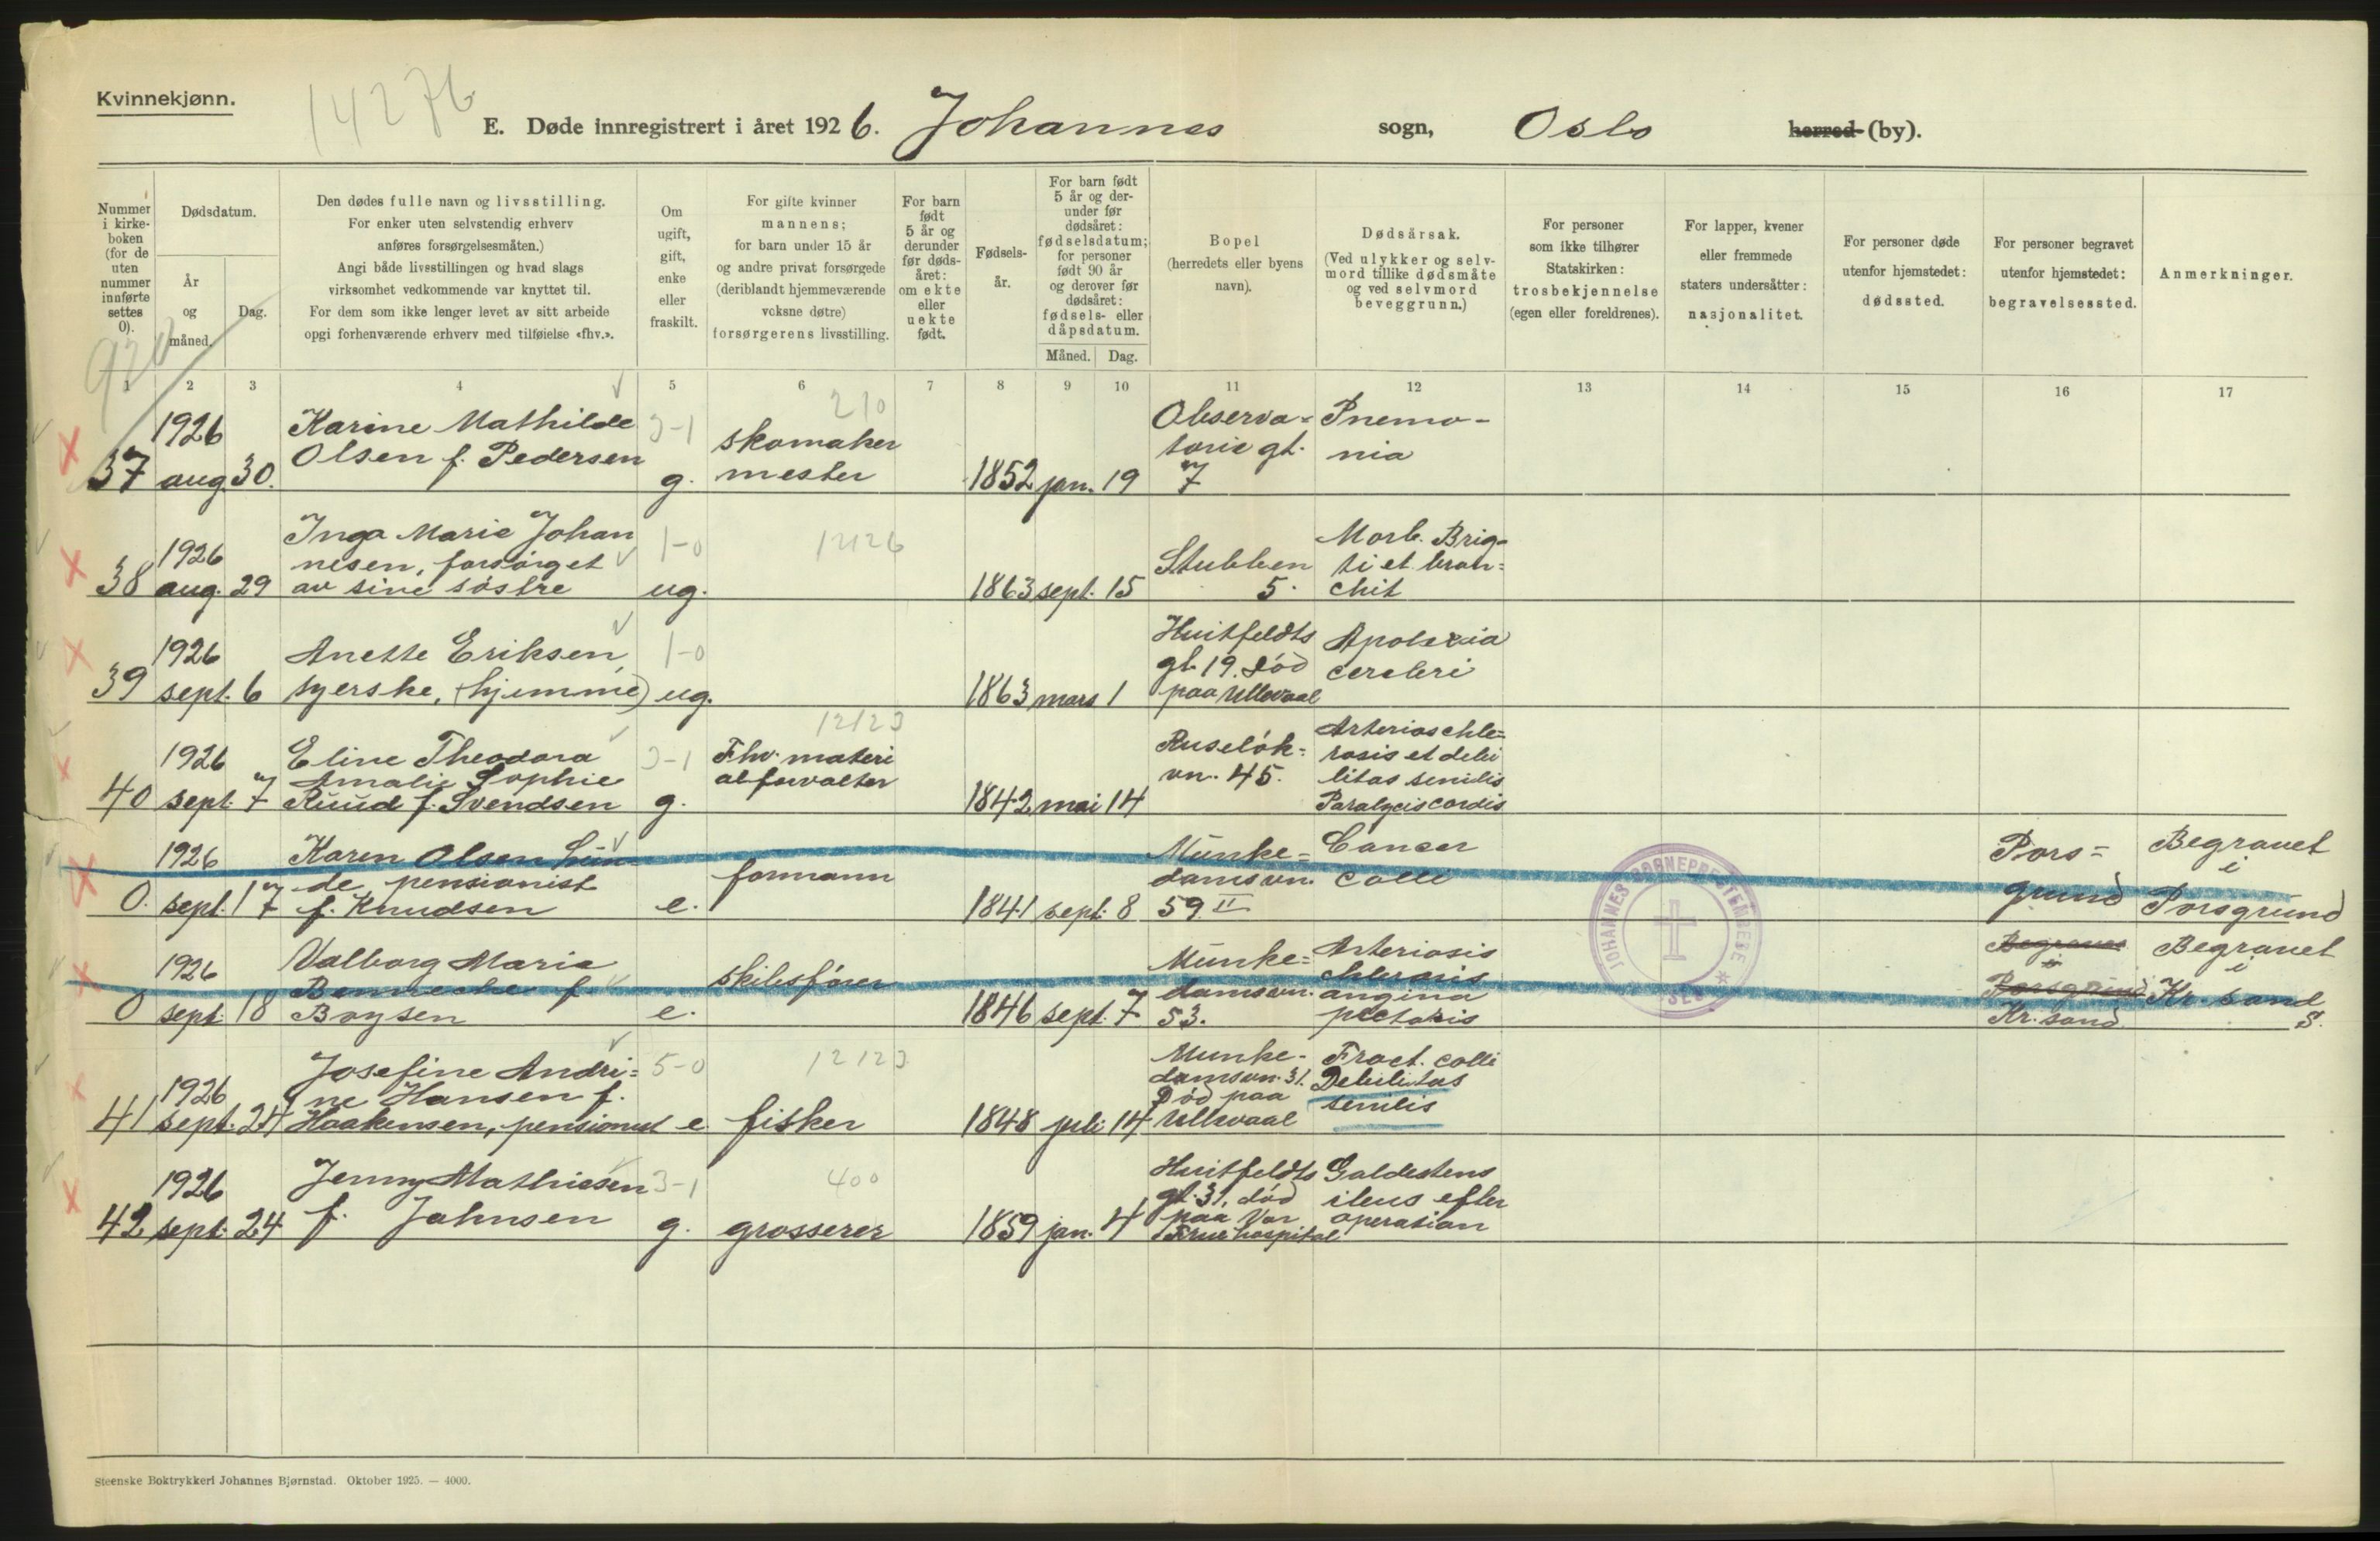 Kvinnekjønn.
14276
E. Døde innregistrert i året 1926. Johannes sogn, Oslo herred (by).
Nummer i kirke-boken (for de uten nummer innførte settes 0).
Dødsdatum.
År og måned.
Dag.
Den dødes fulle navn og livsstilling.
For enker uten selvstendig erhverv
anføres forsørgelsesmåten.)
Angi både livsstillingen og hvad slags
virksomhet vedkommende var knyttet til.
For dem som ikke lenger levet av sitt arbeide
opgi forhenværende erhverv med tilføielse «fhv.».
Om ugift, gift, enke eller fraskilt.
For gifte kvinner
mannens;
for barn under 15 år
og andre privat forsørgede
(deriblandt hjemmeværende
voksne døtre)
forsørgerens livsstilling.
For barn født 5 år og derunder før døds-året: om ekte eller uekte født.
Fødsels-år.
For barn født 5 år og der-under før dødsåret: fødselsdatum; for personer født 90 år og derover før dødsåret: fødsels- eller dåpsdatum.
Måned. Dag.
Bopel
(herredets eller byens
navn).
Dødsårsak.
(Ved ulykker og selv-
mord tillike dødsmåte
og ved selvmord
beveggrunn.)
For personer
som ikke tilhører
Statskirken:
trosbekjennelse
(egen eller foreldrenes).
For lapper, kvener
eller fremmede
staters undersåtter:
nasjonalitet.
For personer døde
utenfor hjemstedet:
dødssted.
For personer begravet
utenfor hjemstedet:
begravelsessted.
Anmerkninger.
1 2 3 4 5 6 7 8 9 10 11 12 13 14 15 16 17
37 1926 aug. 30.
Karine Mathilde
Olsen f. Pedersen
3-1
g.
210
skomaker
mester
1852 jan. 19
Observa-
torie gt.
7
Pnemo-
nia
38 1926 aug. 29
Inga Marie Johan
nesen, forsørget
av sine søstre
1-0
ug.
12126
1863 sept. 15
Stubben
5.
Morb. Brig-
ti et bron=
chit
39 1926 sept. 6
Anette Eriksen,
syerske, (hjemme)
1-0
ug.
1863 mars 1
Huitfeldts
gt. 19. død
paa Ullevaal
Apolexia
cerebri
40 1926 sept. 7
Eline Theodora
Amalie Sophie
Ruud f. Svendsen
3-1
g.
12123
Fhv. materi
alforvalter
1842 mai 14
Ruseløk=
vn. 45.
Arterioschle=
rosis et debi
litas senilis
Paralycis cordis
0. 1926 sept. 17
Karen Olsen Lun-
de, pensionist
f. Knudsen
e.
formann
1841 sept. 8
Munke=
damsvn.
59 II
Cancer
colli
Pors=
grund
Begravet
i
Porsgrund
0 1926 sept. 18
Valborg Marie
Benneche f.
Boysen
e.
skibsfører
1846 sept. 7
Munke=
damsvn.
53.
Arteriosis
chlerosis
angina
pectoris
Begravet
i
Porsgrund
Kr. sand
Begravet
i
Kr. sand
S.
41 1926 sept. 24
Josefine Andri=
ne Hansen f.
Haakensen, pensionist
5-0
e.
12123
fisker
1848 juli 14
Munke-
damsvn. 31.
Død paa
Ullevaal
Fract. colli
Debilitas
senilis
42 1926 sept. 24
Jenny Mathiesen
f. Johnsen
3-1
g.
400
grosserer
1859 jan. 4
Huitfeldts
gt. 31, død
paa Vor
Frue hospital
Galdestens
ileus efter
operation
Steenske Boktrykkeri Johannes Bjørnstad. Oktober 1925. — 4000.